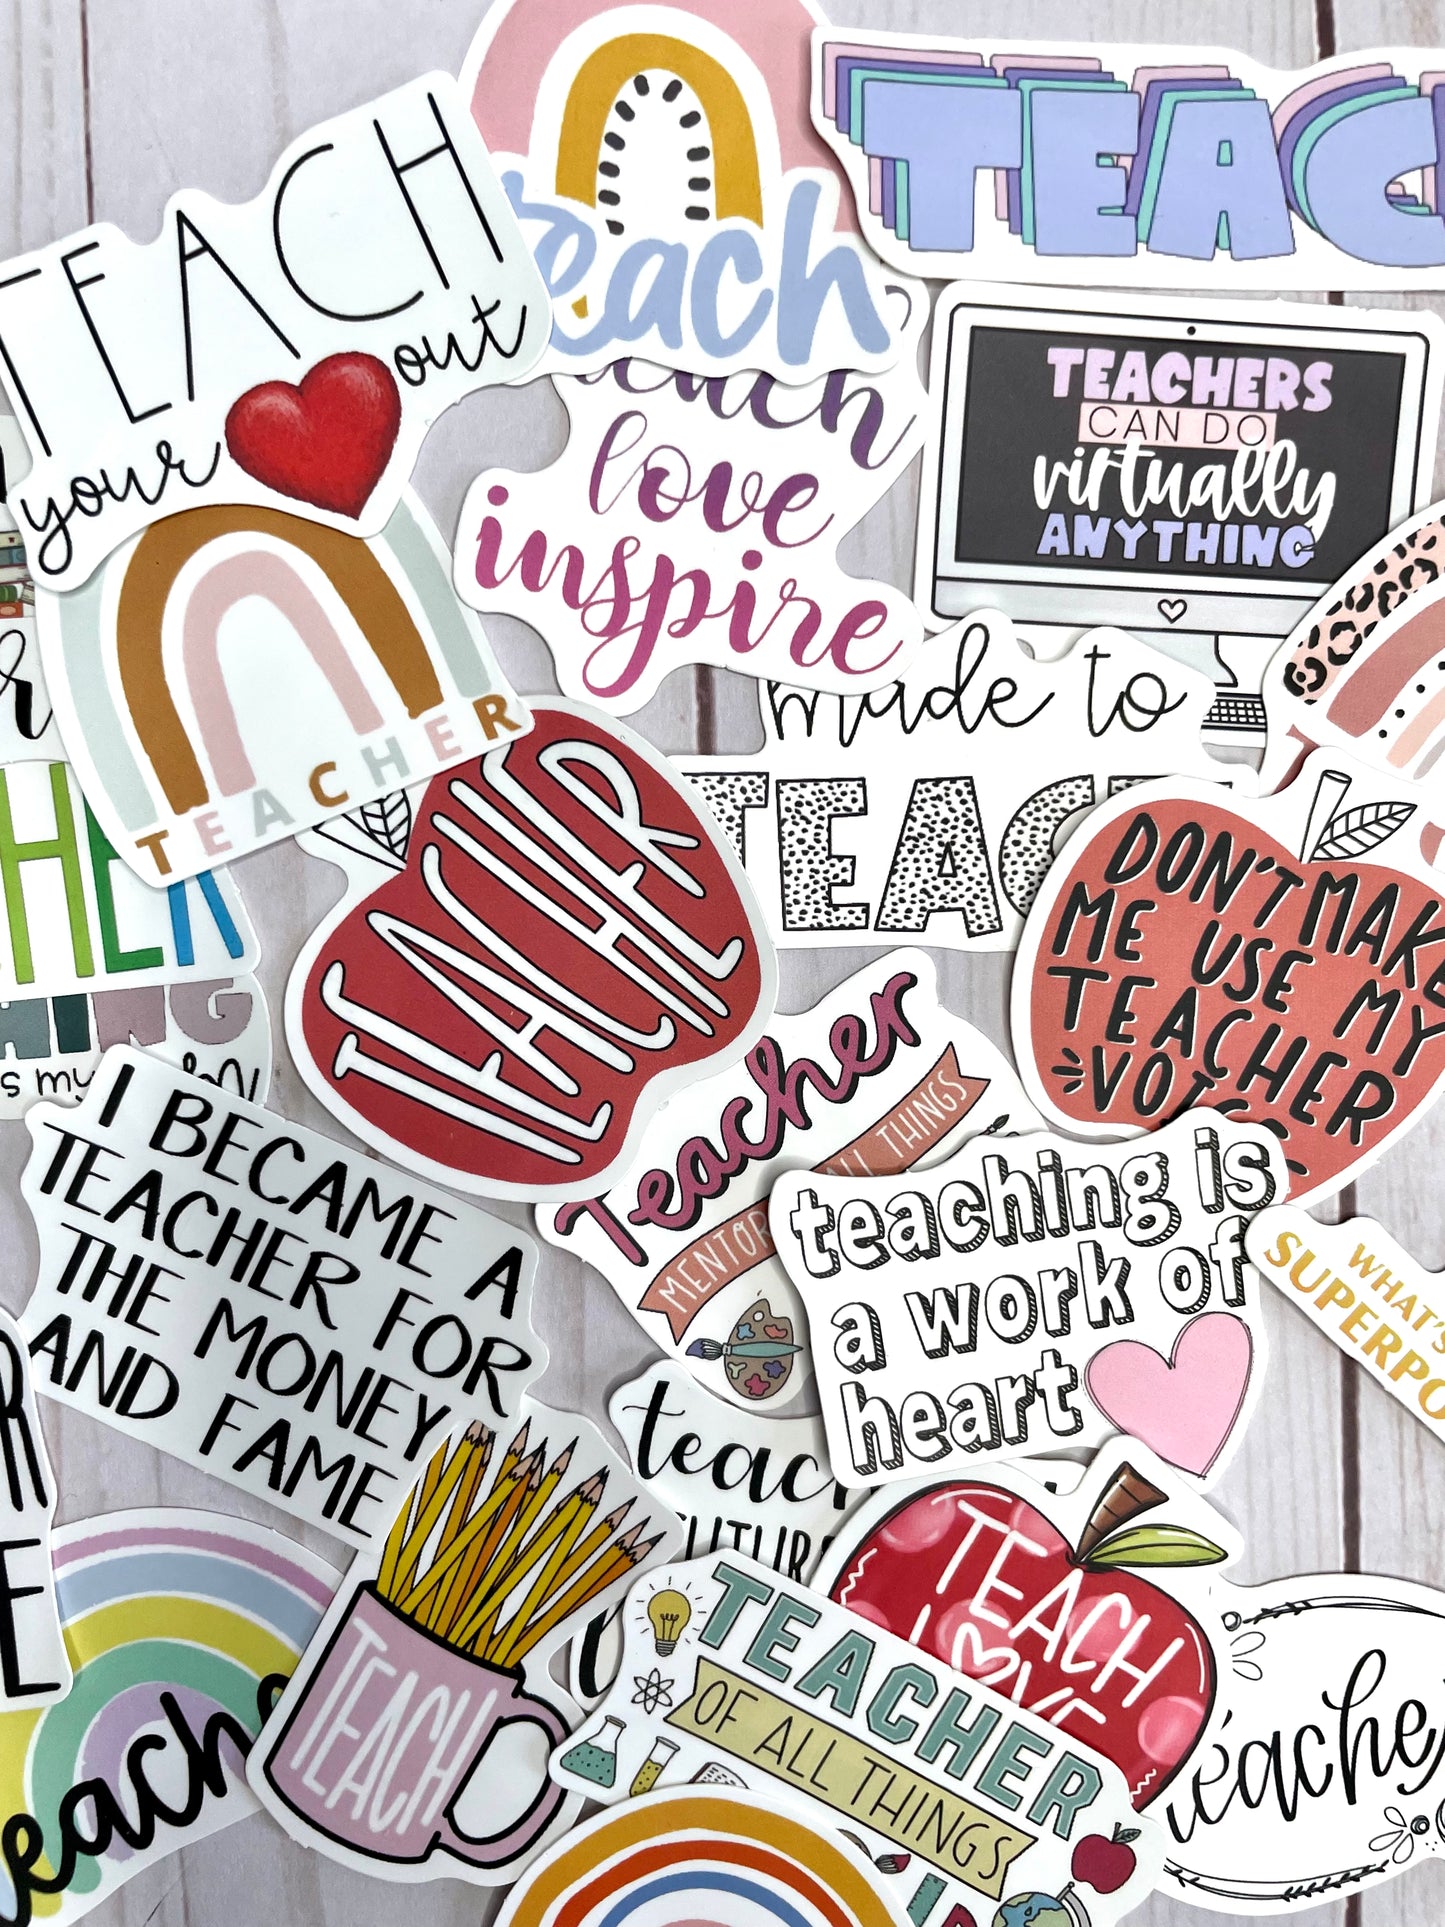 TEACH
your
out
teach
TEAC
teach
love
inspire
TEACHERS
CAN DO
virtually
ANYTHING
TEACHER
made to
TEAC
DON'T MAKE
ME USE MY
TEACHER
TEACHER
HER
I BECAME A
TEACHER FOR
THE MONEY
AND FAME
Teacher
MENTOR
ALL THINGS
teaching is
a work of
heart
WHAT'S
SUPERPO
teac
FUTURE
TEACH
LOVE
TEACHER
OF ALL THINGS
TEACH
teacher
teacher